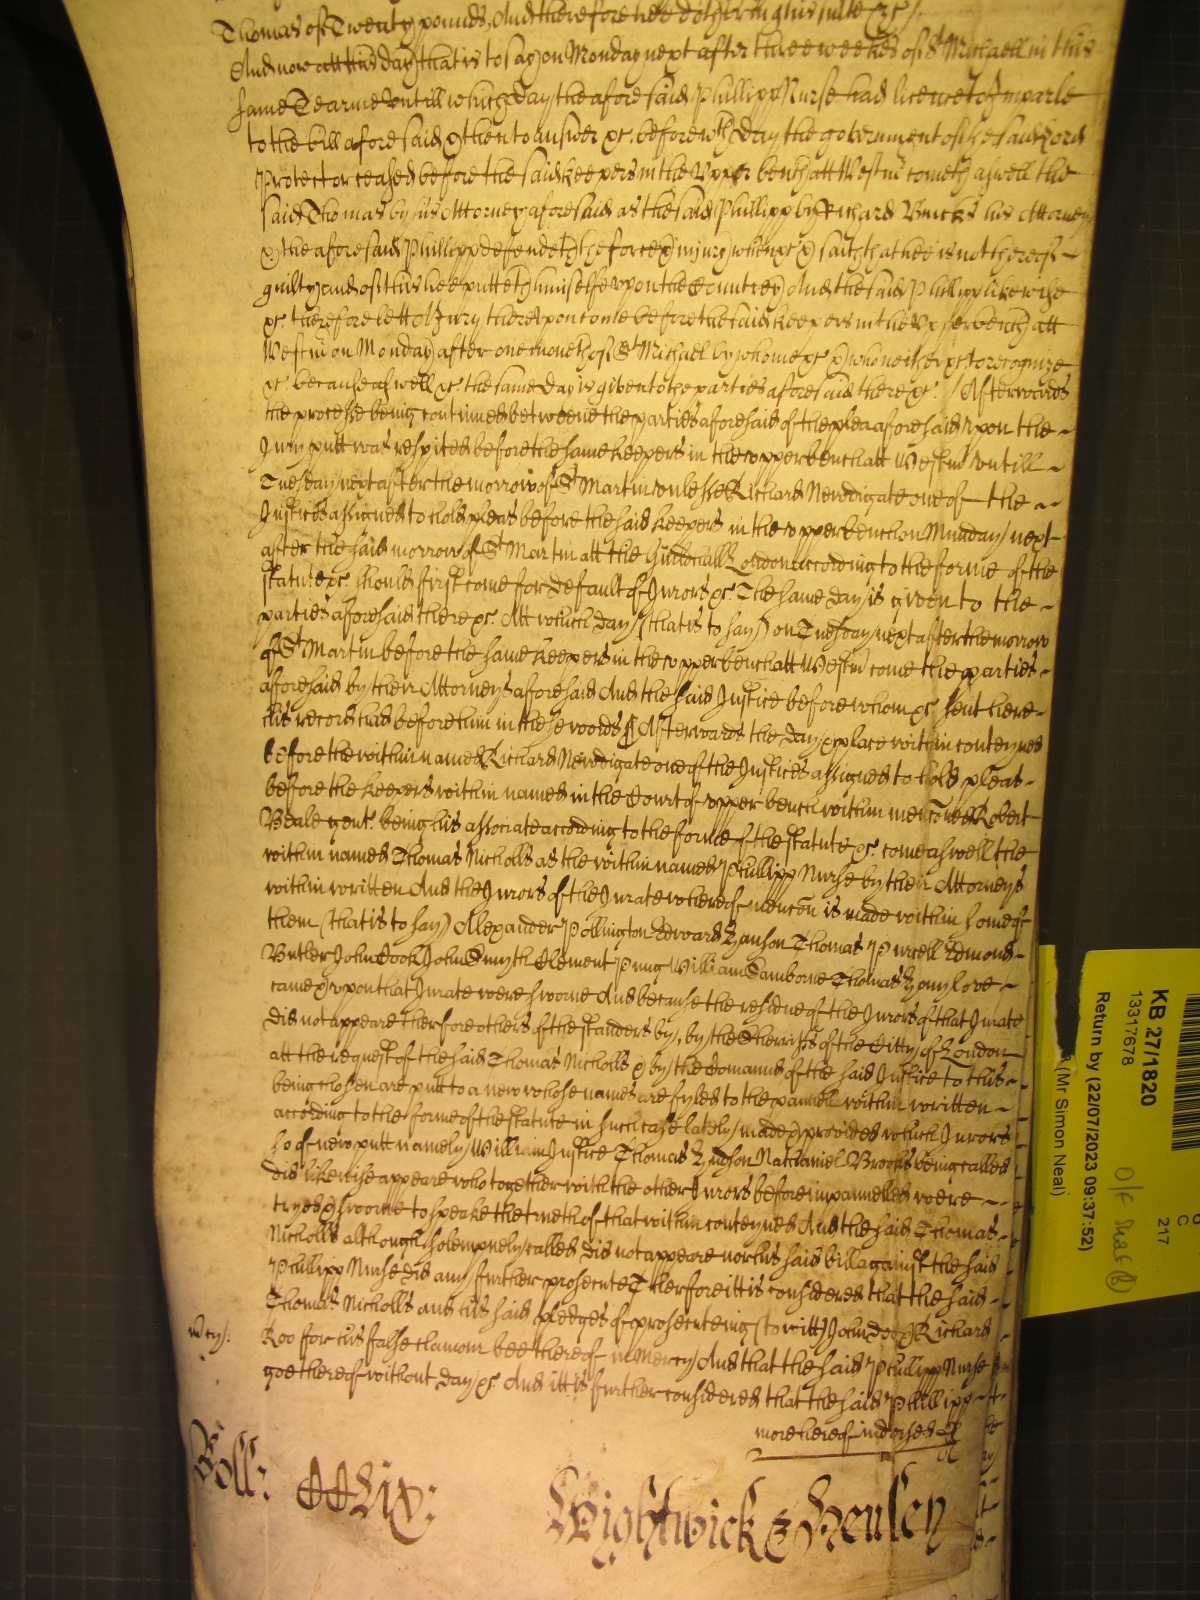 Thomas of Twenty pounds, And therefore hee doth bring his suite &c /.
And now att this day (that is to say) on Monday next after three weekes of St Michaell in this
same Tearme untill which day the aforesaid Phillipp Nurse had licence to Imparle
to the bill aforesaid & then to answer &c. before wch day the government of the said Lord
Protector ceased before the said keepers in the Upper bench att Westmr cometh aswell the
said Thomas by his Attorney aforesaid as the said Phillipp by Richard Bucks his Attorney
& the aforesaid Phillipp defendeth the force & injury when &c & saith that hee is not thereof
guilty and of this hee putteth himselfe upon the Countrey And the said Phillipp likewise
&c. therefore lett A Jury thereupon come before the said keepers in the Upper bench att
Westmr on Monday after one moneth of St Michael by whome &c & who neither &c to recognize
&c because aswell &c the same day is given to the parties aforesaid there &c. / Afterwards
the processe being continued betweene the parties aforesaid of the plea aforesaid upon the
Jury putt was respited before the same keepers in the upper bench att Westmr untill
Tuesday next after the morrow of St Martin unlesse Richard Newdigate one of the
Justices assigned to hold pleas before the said keepers in the upper bench on Munday next
after the said morrow of St Martin att the Guildhall London according to the forme of the
statute &c should first come for default of Jurors &c. The same day is given to the
parties aforesaid there &c. Att which day (that is to say) on Tuesday next after the morrow
of St Martin before the same keepers in the upper bench att Westmr come the parties
aforesaid by their Attorneys aforesaid And the said Justice before whom &c sent here
his record had before him in these words Afterwards the day & place within conteyned
before the within named Richard Newdigate one of the Justices assigned to hold pleas
before the keepers within named in the Court of upper bench within menconed Robert
Beale gent. being his associate according to the forme of the statute &c. come aswell the
within named Thomas Nicholls as the within named Phillipp Nurse by their Attorneys
within written And the Jurors of the Jurate whereof mencon is made within some of
them (that is to say) Alexander Pollington Edward Hanson Thomas Purcell Edmond
Butler John Cook John Smyth Clement Pung William Samborne Thomas Honylove
came & upon that Jurate were sworne And because the residue of the Jurors of that Jurate
did not appeare therefore others of the standers by, by the Sherriffs of the Citty of London
att the request of the said Thomas Nicholls & by the Comannd of the said Justice to this
being chosen are putt to a new whose names are fyled to the pannell within written
according to the forme of the statute in such case lately made & provided which Jurors
so of new putt namely William Justice Thomas Hudson Nathaniel Brooks being called
did likewise appeare who together with the other Jurors before impannelled were
tryed & sworne to speake the trueth of that within conteyned And the said Thomas
Nicholls although solempnely called did not appeare nor his said bill against the said
Phillipp Nurse did any further prosecute Therefore itt is considered that the said
Thomas Nicholls and his said pledges of prosecuteing (to witt) John Doe & Richard
mercy /. Roo for his false clamour bee thereof in Mercy And that the said Phillipp Nurse
goe thereof without day &c. And itt is further considered that the said Phillipp
more hereof indorsed
Roll: CCVix: Wightwick & Henley
KB 27/1820
13317678
Return by (22/07/2023 09:37:52)
(Mr Simon Neal)
217
C